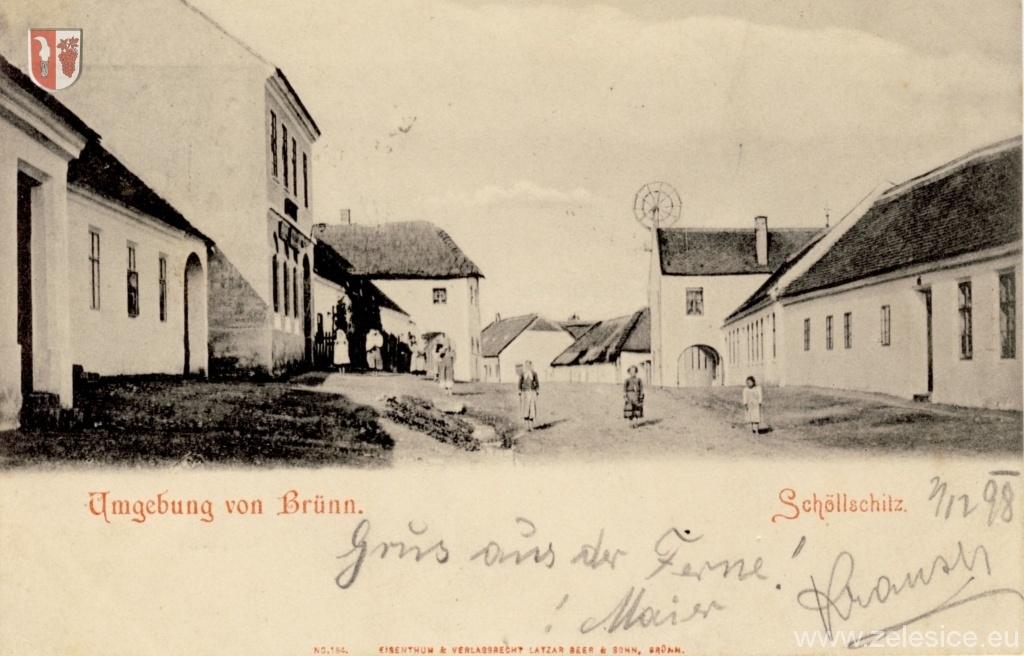 Umgebung von Brünn.
Schöllschitz.
98
Grus aus der Ferne!
Maier
No. 184. EIGENTHUM & VERLAGSRECHT LATZAR BEER & SOHN, BRÜNN.
www.zelesice.eu